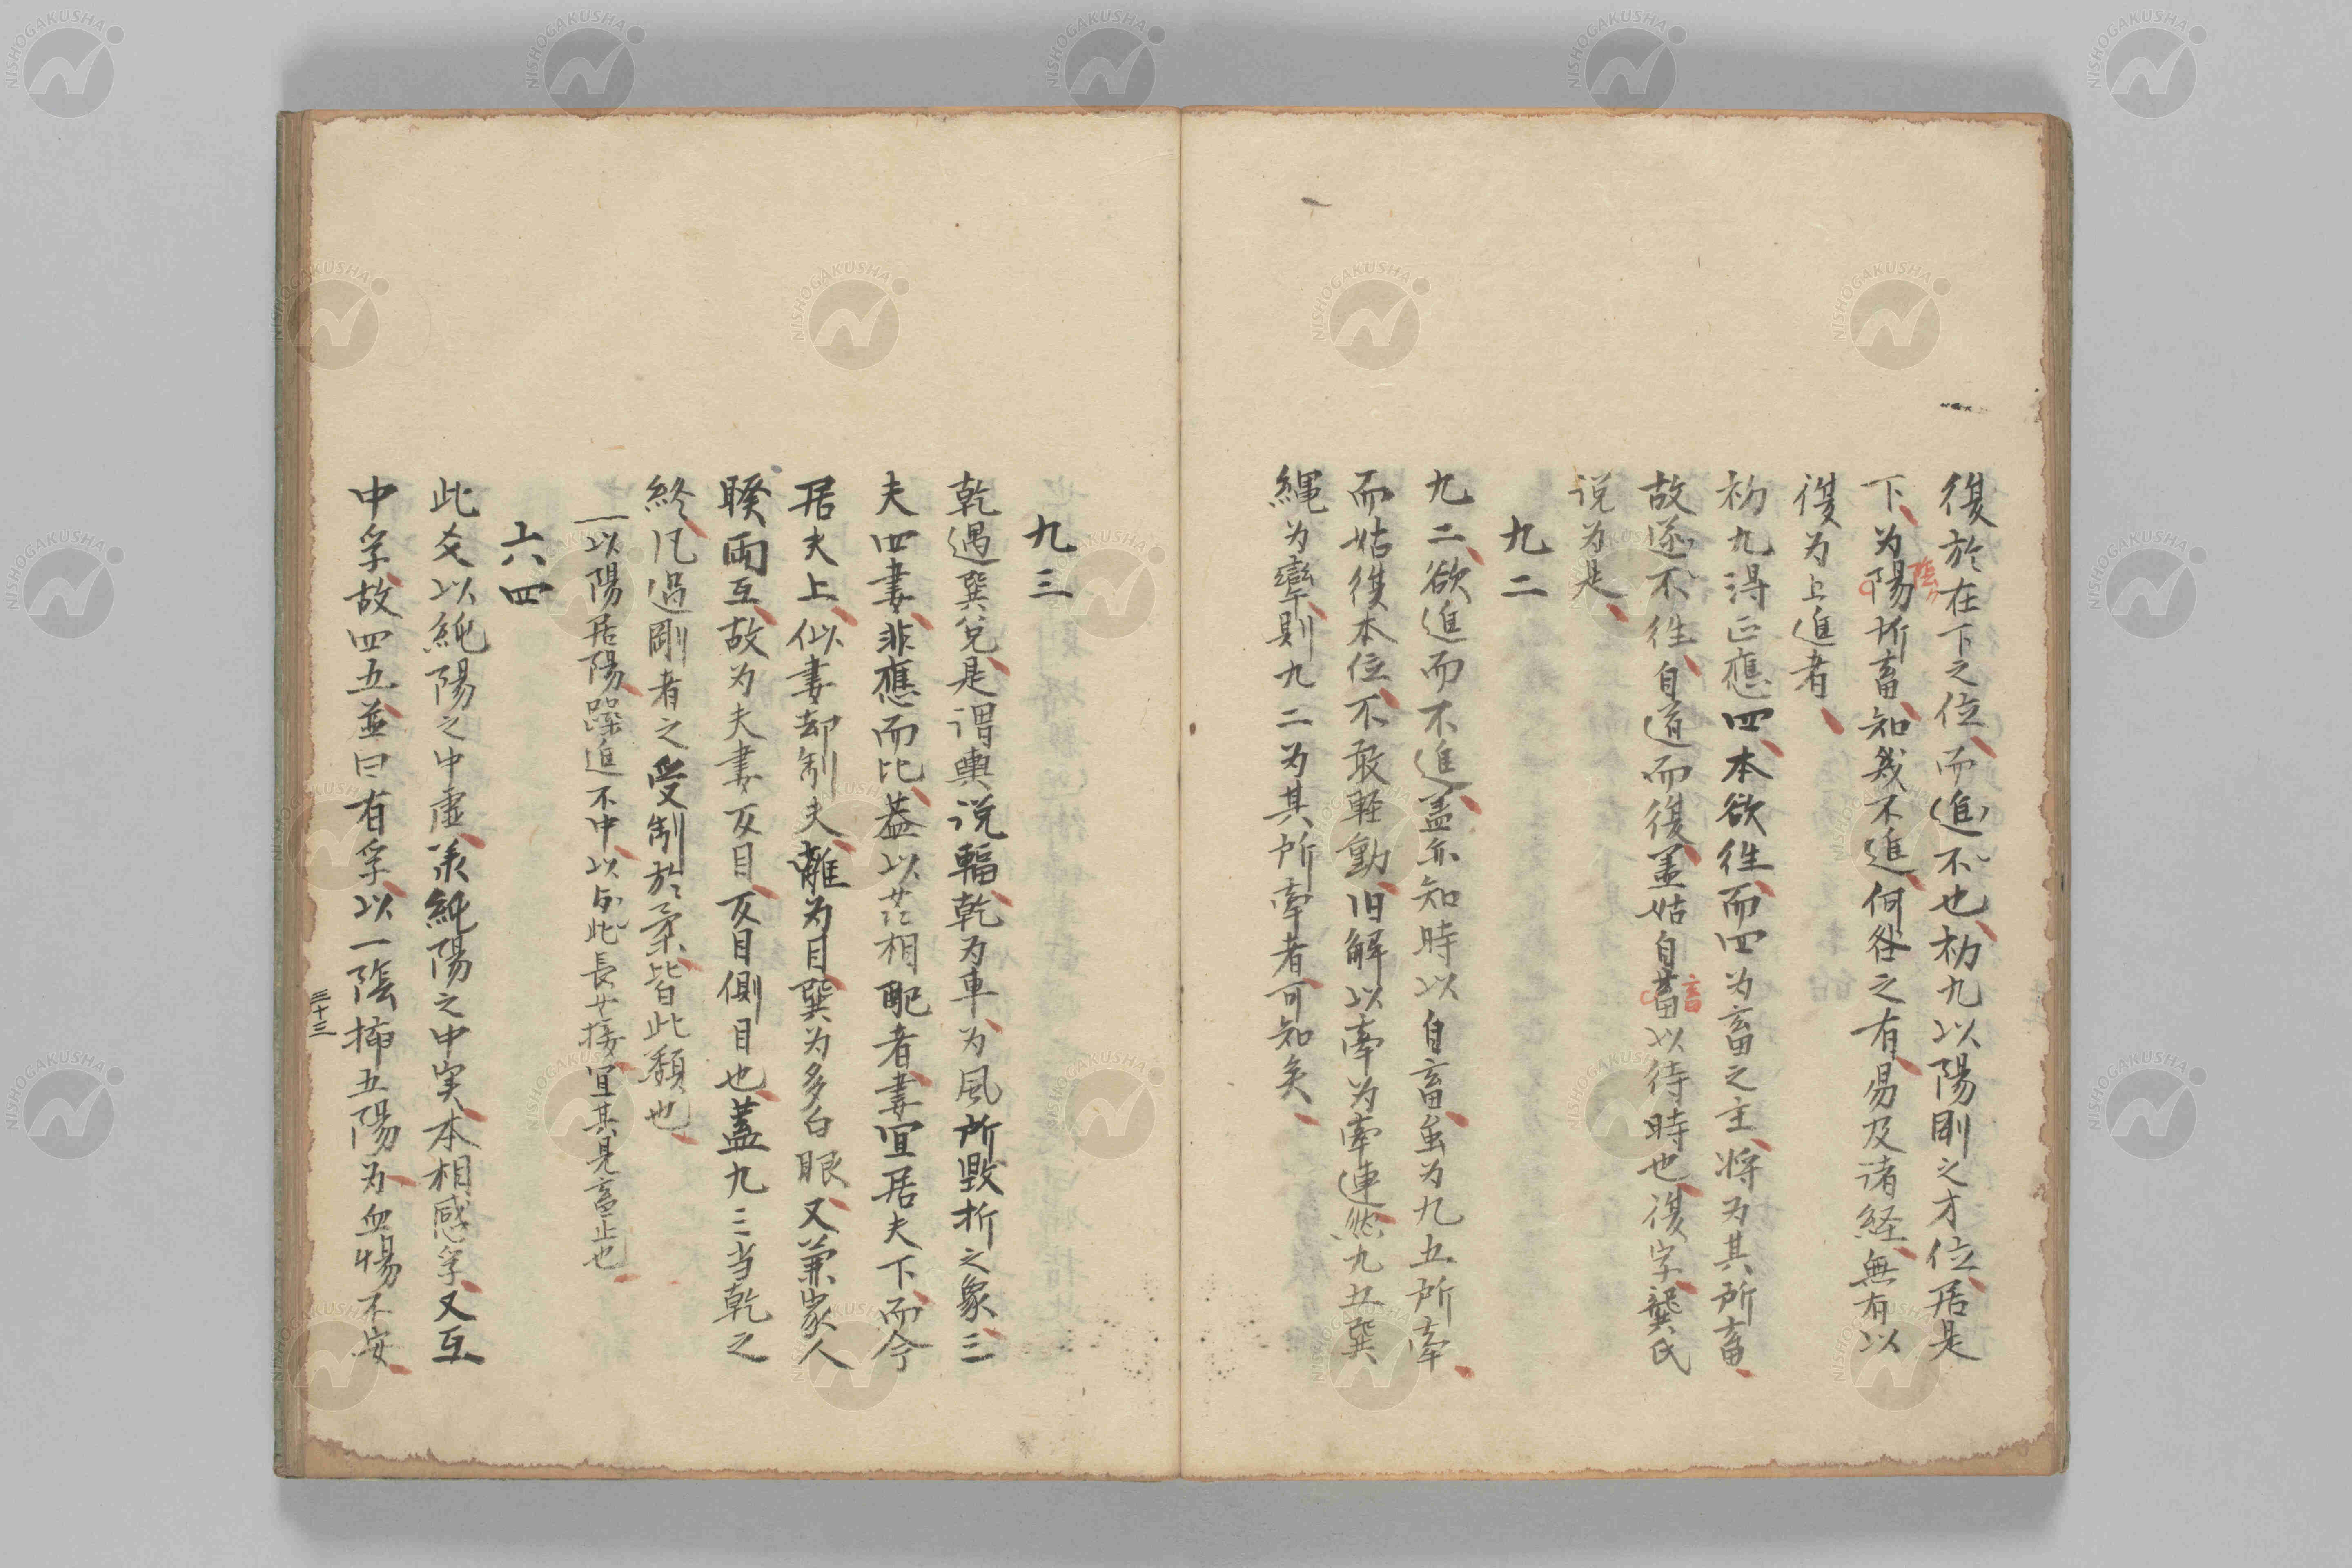 復於在下之位而進不也初九以陽剛之才位居是
下為陽所畜知幾不進何咎之有易及諸経無有以
陰
復為上進者
初九得正應四本欲往而四為畜之主将為其所畜
故遂不往自道而復盖姑自蓄以待時也復字龔氏
畜
说為是
九二
九二欲進而不進盖亦知時以自畜虽為九五所牽
而姑復本位不敢軽動旧解以牽為牽連然九五巽
繩為牽則九二為其所牽者可知矣
九三
乾遇巽兌是謂輿说輻乾為車為風所毀折之象三
夫四妻非應而比葢以茫相配者妻宜居夫下而今
居夫上似妻却制夫離為目巽為多白眼又兼家人
睽両互故為夫妻反目反目側目也蓋九三当乾之
終凡過剛者之受制於柔皆此類也
一以陽居陽躁進不中以与此長女接宜其見畜止也
六四
此爻以純陽之中虛承純陽之中実本相感孚又互
中孚故四五並曰有孚以一陰揷五陽為血惕不安
三十三
NISHOGAKUSHA